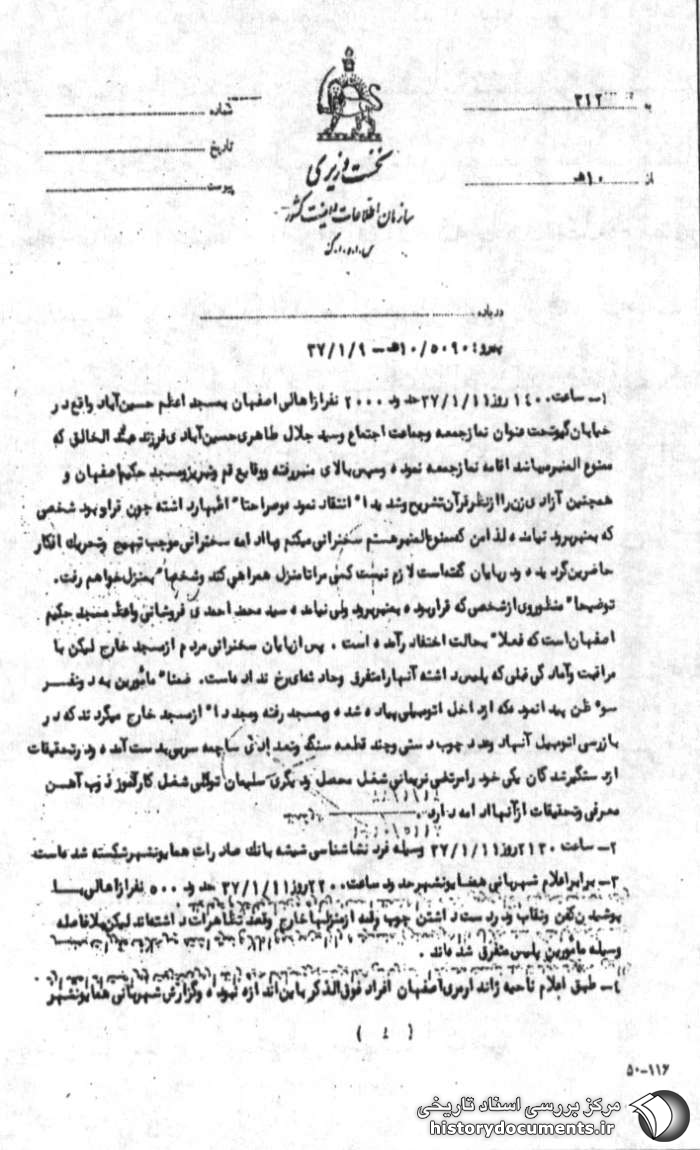 به ........ ۳۱۲
از ........ ۱۰هـ
شماره
تاریخ
پیوست
نخست وزیری
سازمان اطلاعات و امنیت کشور
س.ا.و.ا.ک
درباره
پیرو: ۱۰/۵۰۹۰هـ – ۳۷/۱/۹
۱– ساعت ۱۴۰۰ روز ۳۷/۱/۱۱ حدود ۲۰۰۰ نفر از اهالی اصفهان بمسجد اعظم حسین‌آباد واقع در
خیابان تحت عنوان نماز جمعه و جماعت اجتماع و سید جلال طاهری حسین‌آبادی فرزند عبدالخالق که
ممنوع‌المنبر میباشد اقامه نماز جمعه نموده و سپس بالای منبر رفته و وقایع قم و تبریز و مسجد حکیم اصفهان و
همچنین آزادی زن را از نظر قرآن تشریح و شدیدا" انتقاد نموده و صراحتا" اظهار داشته چون قرار بود شخصی
که بمنبر برود نیامده لذا من که ممنوع‌المنبر هستم سخنرانی میکنم و با ادامه سخنرانی موجب تهییج و تحریک افکار
حاضرین گردیده و در پایان گفته است لازم نیست کسی مرا تا منزل همراهی کند و شخصا" بمنزل خواهم رفت.
توضیحا" منظور وی از شخصی که قرار بوده بمنبر برود ولی نیامده سید محمد احمدی فروشانی واعظ مسجد حکیم
اصفهان است که فعلا" بحالت اختفا درآمده است . پس از پایان سخنرانی مردم از مسجد خارج لیکن با
مراقبت و آمادگی قبلی که پلیس داشته آنها را متفرق و حادثه‌ای رخ نداده است. ضمنا" مامورین به دو نفر
سوء ظن پیدا نموده که از داخل اتومبیلی پیاده شده و بمسجد رفته و مجددا" از مسجد خارج میگردند که در
بازرسی اتومبیل آنها دو عدد چوب دستی و چند قطعه سنگ و تعدادی ساچمه سربی بدست آمده و در تحقیقات
از دستگیرشدگان یکی خود را مرتضی نریمانی شغل محصل و دیگری سلیمان توکلی شغل کارآموز ذوب آهن
معرفی و تحقیقات از آنها ادامه دارد.
۲– ساعت ۲۱۳۰ روز ۳۷/۱/۱۱ وسیله فرد ناشناسی شیشه بانک صادرات همایونشهر شکسته شده است.
۳– برابر اعلام شهربانی همایونشهر حدود ساعت ۲۲۰۰ روز ۳۷/۱/۱۱ حدود ۵۰۰ نفر از اهالی با
پوشیدن کفن و نقاب و در دست داشتن چوب و قمه از منزلها خارج و قصد تظاهرات داشته‌اند لیکن بلافاصله
وسیله مامورین پلیس متفرق شده‌اند .
۴– طبق اعلام ناحیه ژاندارمری اصفهان افراد فوق‌الذکر باین اندازه نبوده و گزارش شهربانی همایونشهر
۵۰-۱۱۶
مرکز بررسی اسناد تاریخی
historydocuments.ir